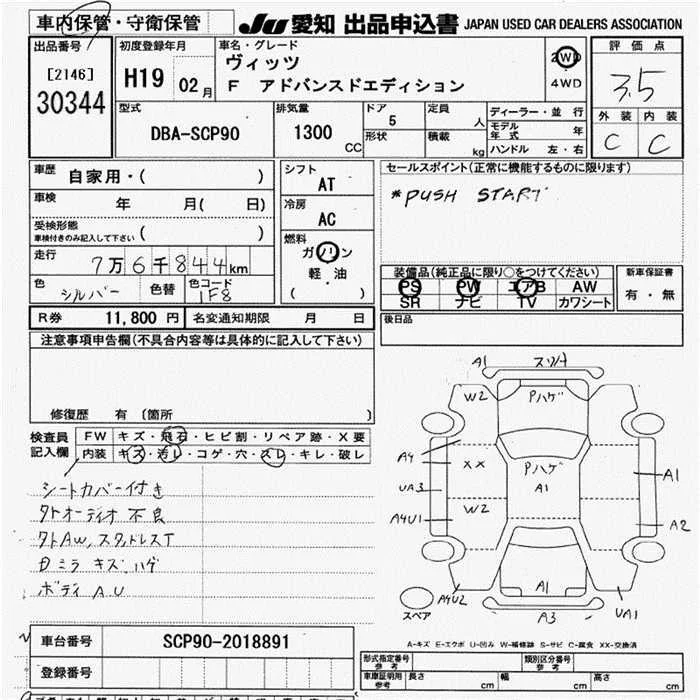 車内保管・守衛保管 JU 愛知 出品申込書 JAPAN USED CAR DEALERS ASSOCIATION
出品番号 [2146] 30344
初度登録年月 H19 02月
車名・グレード ヴィッツ F アドバンスドエディション
2WD ・ 4WD
評価点 3.5
外装 C 内装 C
型式 DBA-SCP90
排気量 1300 CC
ドア 5 形状
定員 人 積載 kg
ディーラー・並行
モデル年式 年
ハンドル 左・右
車歴 自家用・( )
車検 年 月( 日)
受検形態 車検付きのみ記入して下さい ( )
走行 7万6千844km
色 シルバー 色替 色コード 1F8
シフト AT
冷房 AC
燃料 ガソリン 軽・油 ( )
セールスポイント(正常に機能するものに限ります)
*PUSH START
装備品(純正品に限り○をつけてください)
PS PW エアB AW
SR ナビ TV カワシート
新車保証書 有・無
R券 11,800 円 名変通知期限 月 日
後日品
注意事項申告欄(不具合内容等は具体的に記入して下さい)
修復歴 有 〔箇所 〕
検査員記入欄
FW キズ・飛石・ヒビ割・リペア跡・X要
内装 キズ・汚レ・コゲ・穴・スレ・キレ・破レ
シートカバー付き
外オーディオ不良
外AW,スタッドレスT
日ミラ キズ、ハゲ
ボディ A U
A1
W2 Pハゲ
A4 XX Pハゲ A1
UA3 A1
A4U1 W2 A2
A1
A4U2 A3 UA1
スペア
A-キズ E-エクボ U-凹み W-補修跡 S-サビ C-腐食 XX-交換済
車台番号 SCP90-2018891
登録番号
形式指定番号 参考 類別区分番号 参考
車庫証明用 参考 長さ cm 幅 cm 高さ cm